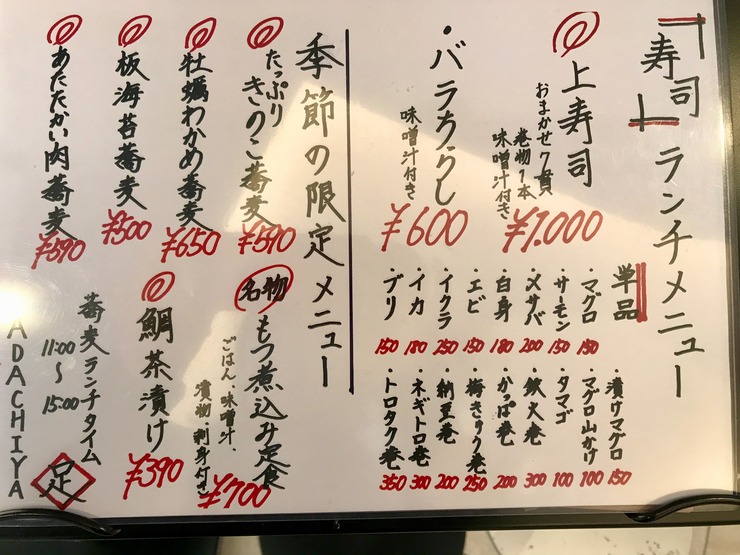 寿司
ランチメニュー
上寿司
おまかせ7貫
巻物1本
味噌汁付き
¥1.000
・バラちらし
味噌汁付き
¥600
単品
・マグロ 150
・サーモン 150
・〆サバ 200
・白身 180
・エビ 150
・イクラ 250
・イカ 180
・ブリ 150
・漬けマグロ 150
・マグロ山かけ 100
・タマゴ 100
・鉄火巻 300
・かっぱ巻 200
・梅きゅう巻 250
・納豆巻 200
・ネギトロ巻 300
・トロタク巻 350
季節の限定メニュー
たっぷり
きのこ蕎麦
¥590
牡蠣わかめ蕎麦
¥650
板海苔蕎麦
¥500
あたたかい肉蕎麦
¥590
名物
もつ煮込み定食
ごはん、味噌汁、
漬物・刺身付き
¥700
鯛茶漬け
¥390
蕎麦ランチタイム
11:00
〜
15:00
足
ADACHIYA